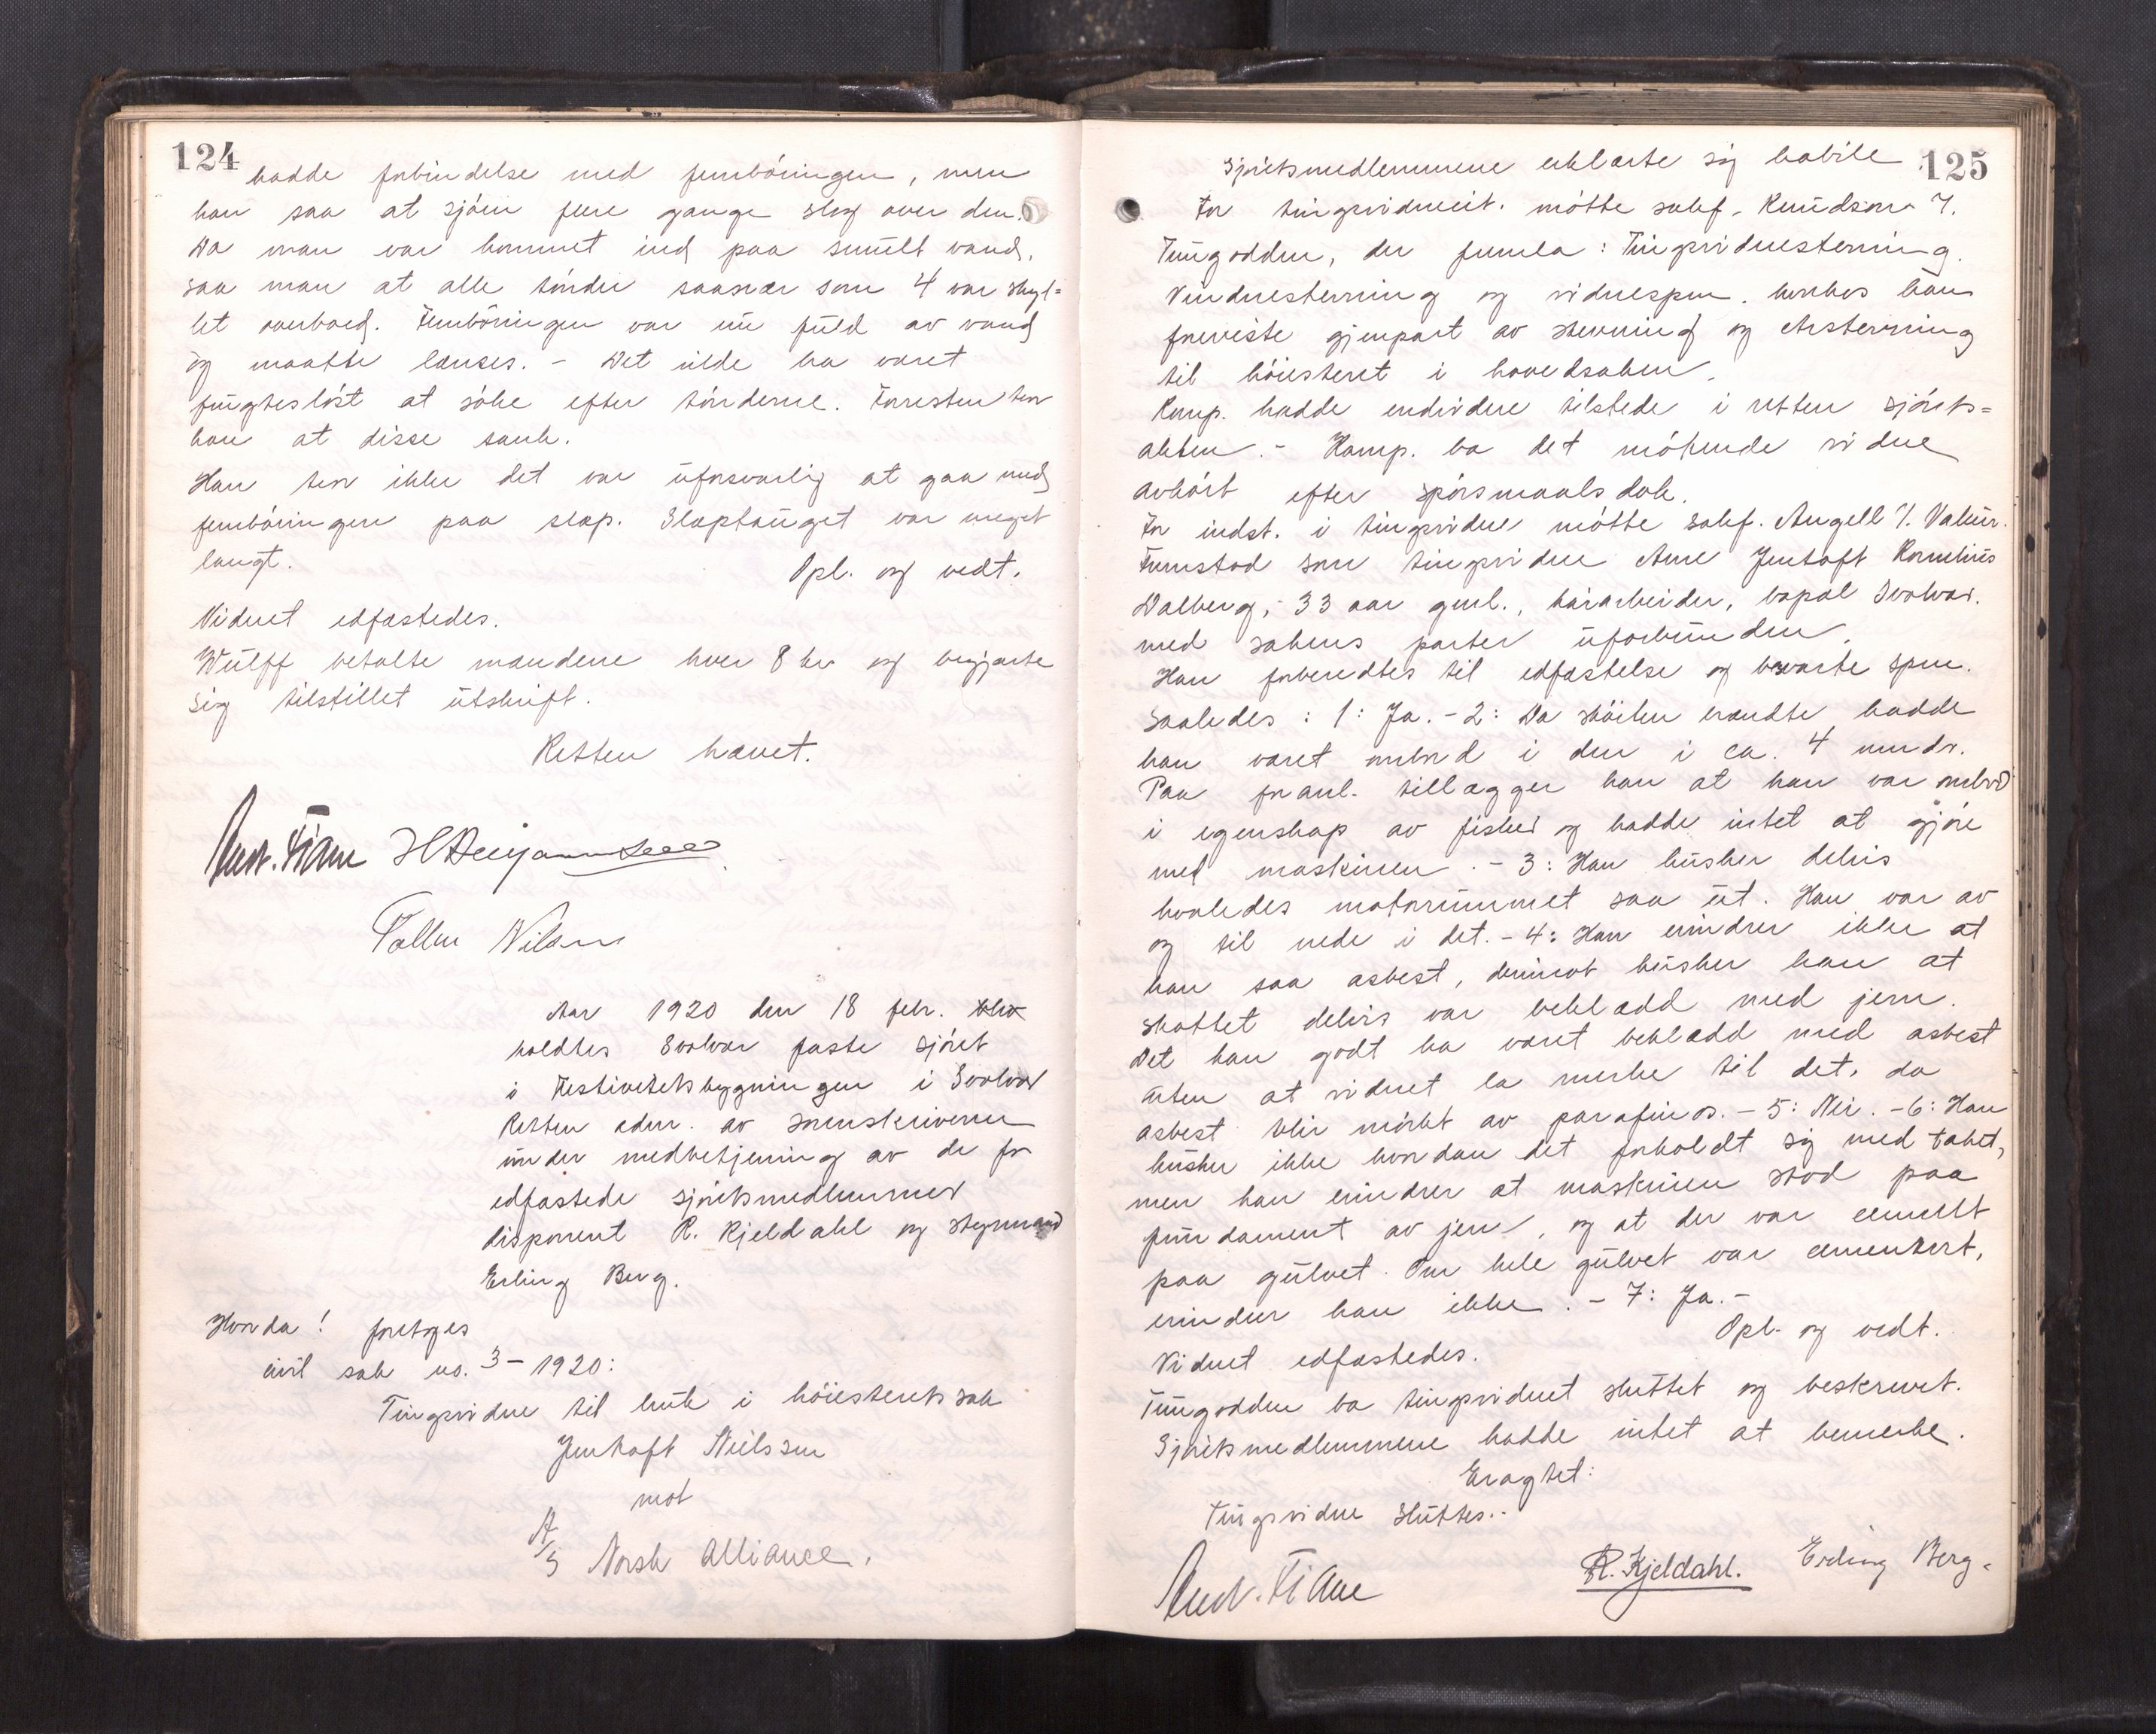 124
hadde forbindelse med fembøringen, men
han saa at sjøen flere gange slog over den.
Da man var kommet ind paa smult vand,
saa man at alle tønder saanær som 4 var skyl=
let overbord. Fembøringen var nu fuld av vand
og maatte lænses. - Det vilde ha været
frugtesløst at søke efter tønderne. Forresten tror
han at disse sank.
Han tror ikke det var uforsvarlig at gaa med
fembøringen paa slæp. Slæptauget var meget
langt.
Opl. og vedt.
Vidnet edfæstedes.
Wulff betalte mændene hver 8 kr og begjærte
sig tilstillet utskrift.
Retten hævet.
And. Fiane H Benjaminsen
Tollev Nilsen
Aar 1920 den 18 febr. blev
holdtes Svolvær faste sjøret
i Festivitetsbygningen i Svolvær
Retten adm. av sorenskriveren
under medbetjening av de før
edfæstede sjøretsmedlemmer
disponent R. Kjeldahl og styrmand
Erling Berg.
Hvorda! foretoges
civil sak no. 3 - 1920:
Tingsvidne til bruk i høiesteretssak
Jentoft Nielssen
mot
A/S Norsk Alliance.
125
Sjøretsmedlemmene erklærte sig habile
For tingsvidneit. møtte sakf. Knudson f.
Tungodden, der fremla: Tingsvidnestevning.
Vindnestevning og vidnespm. hvorhos han
foreviste gjenpart av stevning og citstevning
til høiesteret i hovedsaken.
Komp. hadde endvidere tilstede i retten sjørets=
akten. - Komp. ba det møtende vidne
avhørt efter spørsmaalsdok.
For indst. i tingsvidne møtte sakf. Angell f. Valeur.
Fremstod som tingsvidne Arne Jentoft Kornelius
Dalberg, 33 aar gml., havarbeider, bopæl Svolvær.
med sakens parter uforbunden.
Han forberedtes til edfæstelse og besvarte spm.
saaledes: 1: Ja. - 2: Da skøiten brændte hadde
han været ombord i den i ca. 4 mndr.
Paa foranl. tillægger han at han var ombord
i egenskap av fisker og hadde intet at gjøre
med maskinen. - 3: Han husker delvis
hvorledes motorrummet saa ut. Han var av
og til nede i det. - 4: Han erindrer ikke at
han saa asbest, derimot husker han at
skottet delvis var beklædd med jern.
Det kan godt ha været beklædd med asbest
uten at vidnet la merke til det, da
asbest blir mørkt av parafinos. - 5: Nei. - 6: Han
husker ikke hvordan det forholdt sig med taket,
men han erindrer at maskinen stod paa
fundament av jern, og at der var cement
paa gulvet. Om hele gulvet var cementert,
erindrer han ikke. - 7: Ja. -
Opl. og vedt.
Vidnet edfæstedes.
Tungodden ba tingsvidnet sluttet og beskrevet.
Sjøretsmedlemmene hadde intet at bemerke.
Eragtet:
Tingsvidne sluttes..
And. Fiane R. Kjeldahl. Erling Berg.